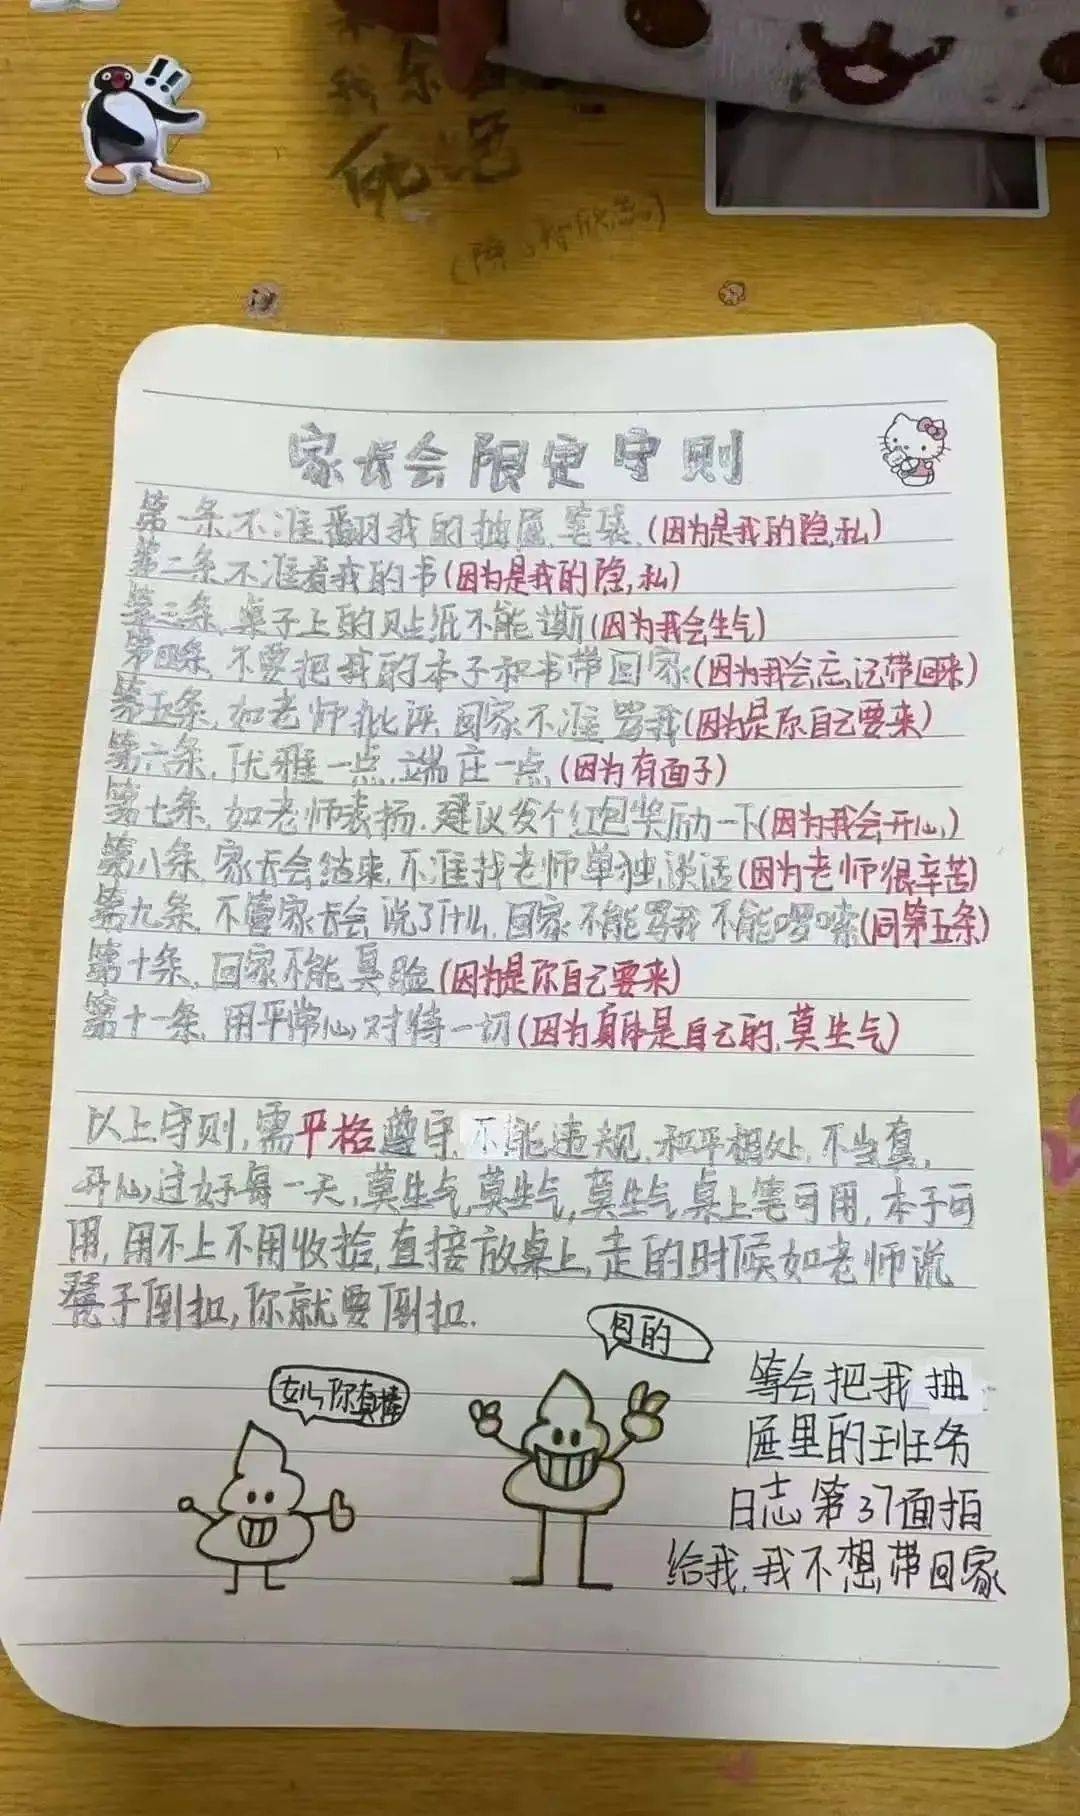 死绝
家长会限定守则
第一条,不准翻我的抽屉,笔袋,(因为是我的隐私)
第二条,不准看我的书(因为是我的隐私)
第三条,桌子上的贴纸不能撕(因为我会生气)
第四条,不要把我的本子和书带回家(因为我会忘记带回来)
第五条,如老师批评,回家不准骂我(因为是你自己要来)
第六条,优雅一点,端庄一点(因为有面子)
第七条,如老师表扬,建议发个红包奖励一下(因为我会开心)
第八条,家长会结束,不准找老师单独谈话(因为老师很辛苦)
第九条,不管家长会说了什么,回家不能骂我不能啰嗦(同第五条)
第十条,回家不能臭脸(因为是你自己要来)
第十一条,用平常心对待一切(因为身体是自己的,莫生气)
以上守则,需严格遵守,不能违规,和平相处,不当真,
开心过好每一天,莫生气,莫生气,莫生气,桌上笔可用,本子可
用,用不上不用收拾,直接放桌上,走的时候如老师说
凳子倒扣,你就要倒扣.
目的
女儿你真棒
等会把我抽
屉里的班务
日志第37面拍
给我,我不想带回家